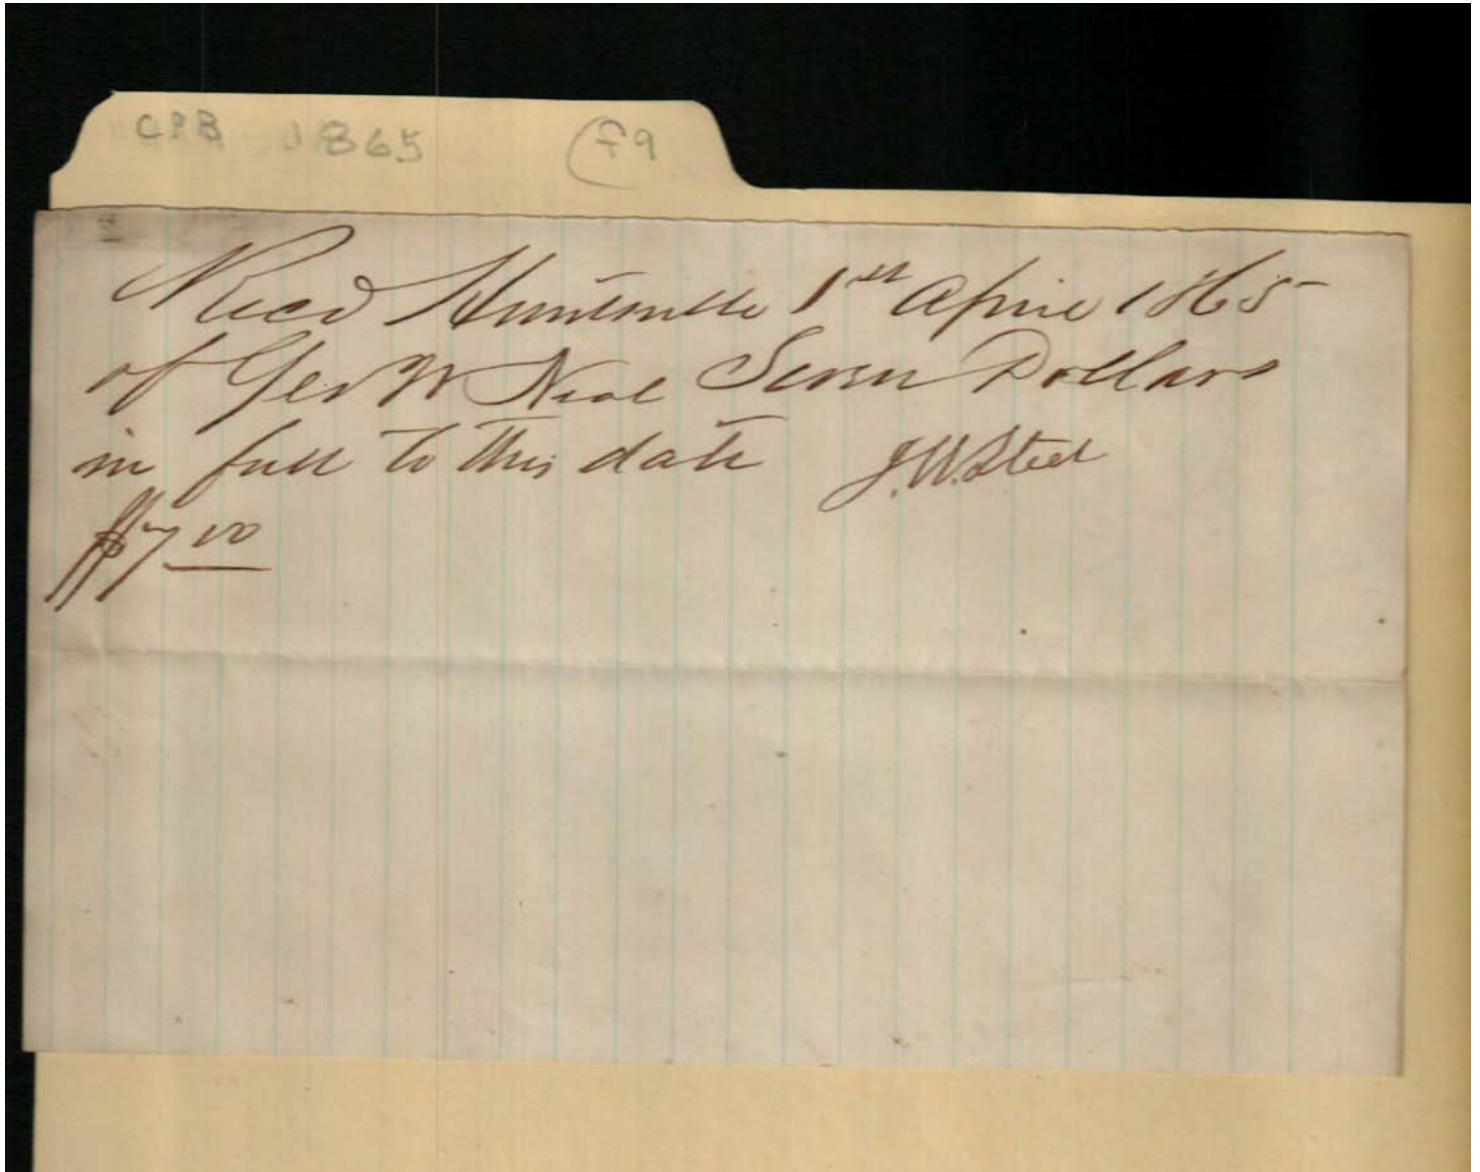 CPB 1865 f9
Recd Huntsville 1st April 1865
of Geo W Neal Seven Dollars
in full to this date J.W. Steel
$7 00